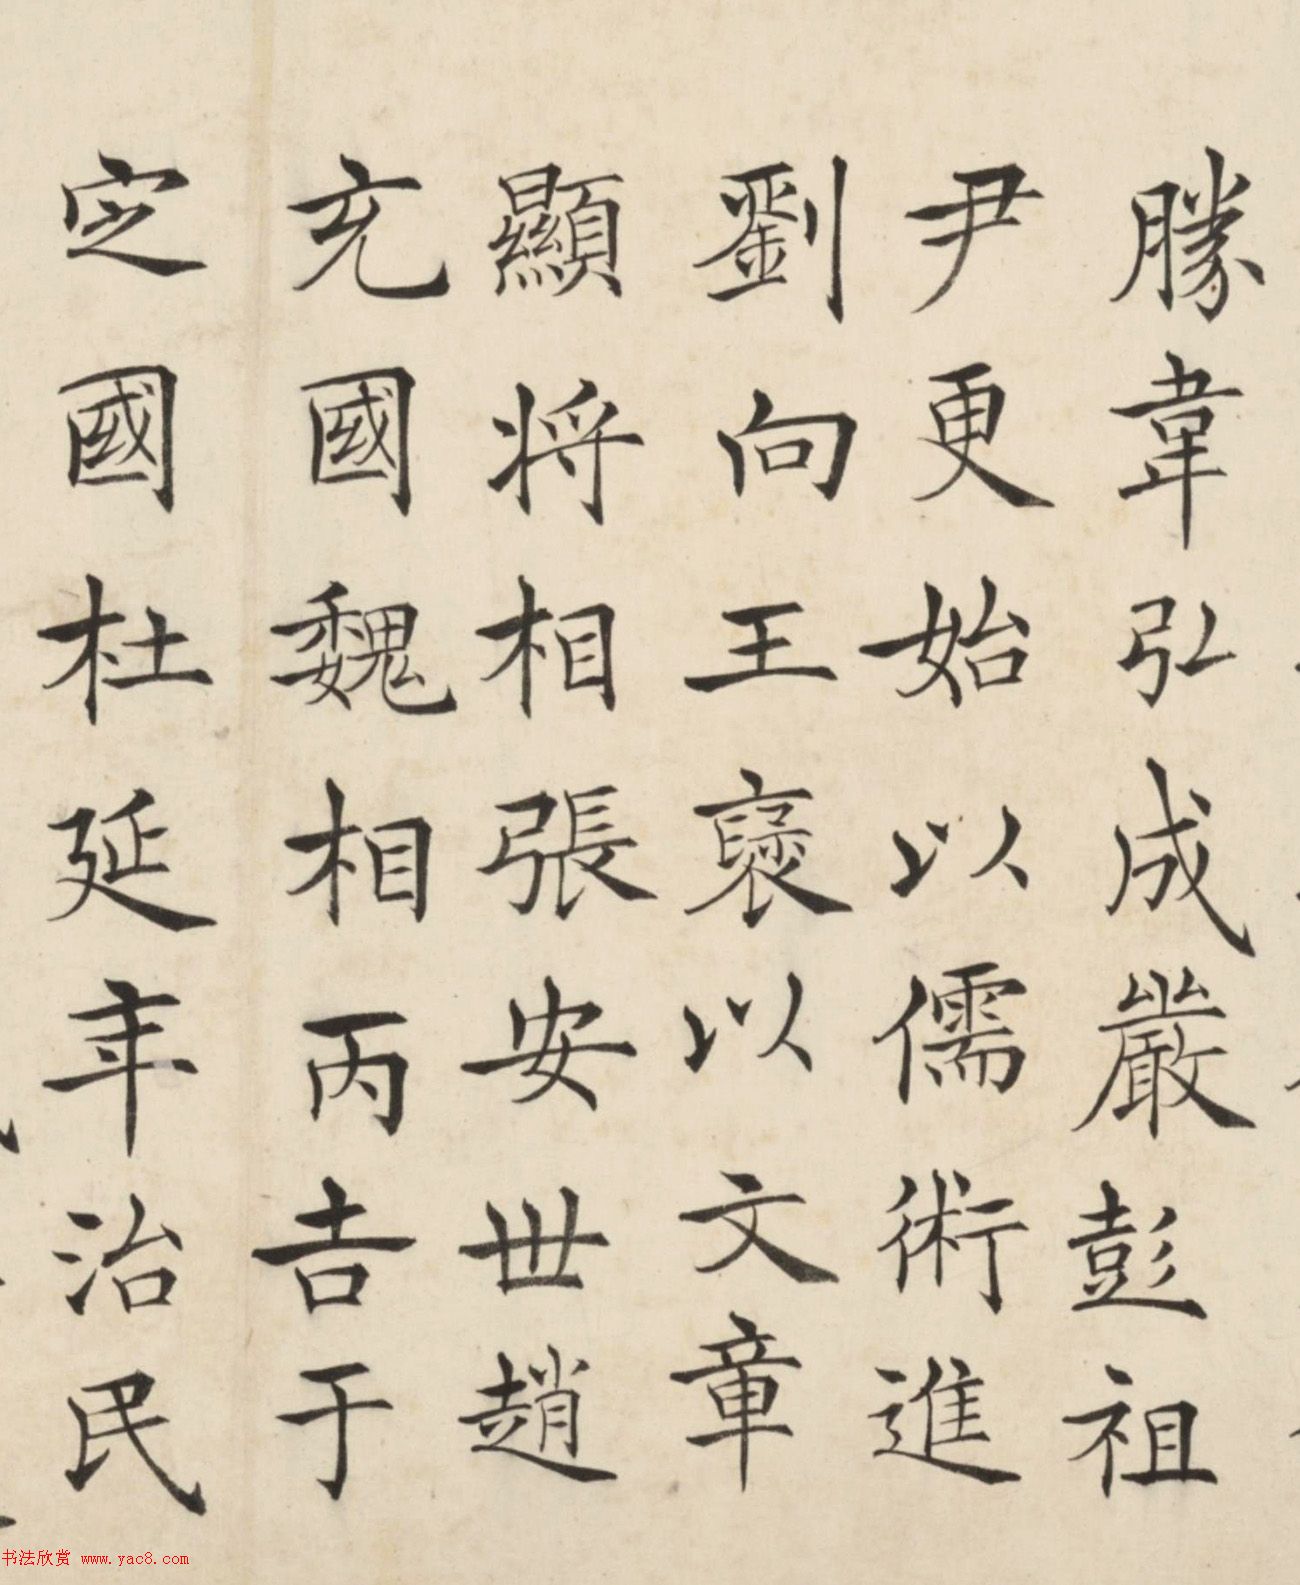 勝韋弘成嚴彭祖
尹更始以儒術進
劉向王襃以文章
顯将相張安世趙
充國魏相丙吉于
定國杜延年治民
书法欣赏 www.yac8.com